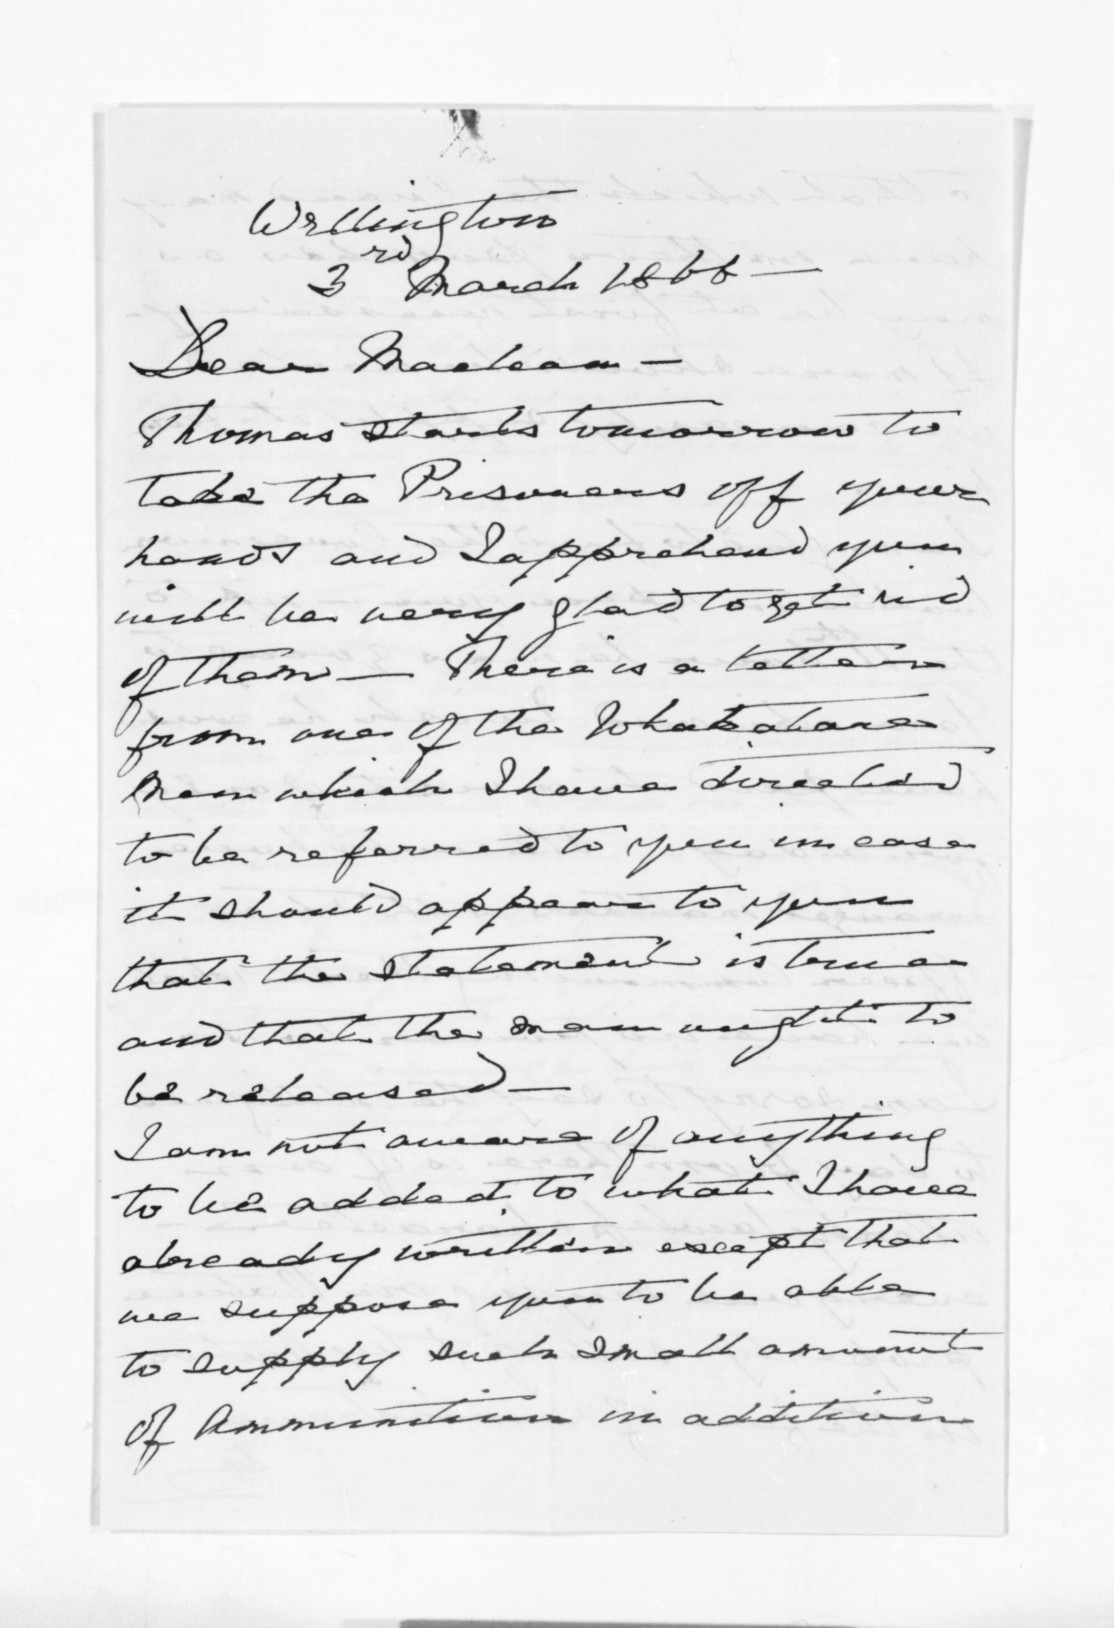 Wellington
3rd March 1866 —
Dear Maclean —
Thomas starts tomorrow to
take the Prisoners off your
hands and I apprehend you
will be very glad to get rid
of them — There is a letter
from one of the Whakatane
men which I have directed
to be referred to you in case
it should appear to you
that the statement is true
and that the man ought to
be released —
I am not aware of anything
to be added to what I have
already written except that
we suppose you to be able
to supply such small amount
of Ammunition in addition